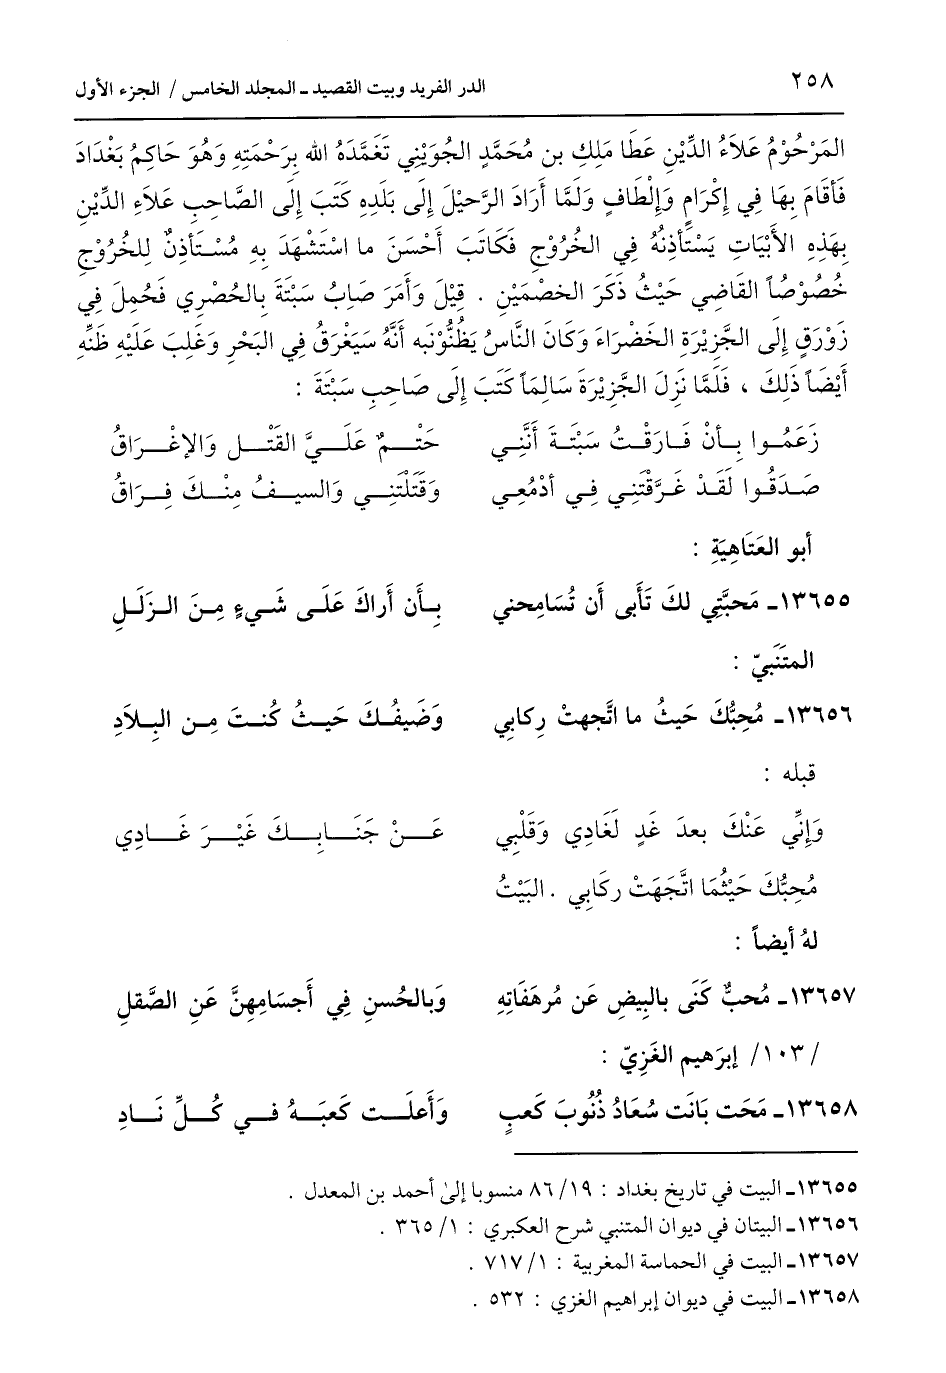 ٢٥٨ الدر الفريد وبيت القصيد ـ المجلد الخامس / الجزء الأول
المَرْحُوْمُ عَلاَءُ الدِّيْنِ عَطَا مَلِكِ بن مُحَمَّدٍ الجُوَيْنِي تَغَمَّدَهُ الله بِرَحْمَتِهِ وَهُوَ حَاكِمُ بَغْدَادَ
فَأقَامَ بِهَا فِي إكْرَامٍ وَإلْطَافٍ وَلَمَّا أرَادَ الرَّحِيْلَ إلَى بَلَدِهِ كَتَبَ إلَى الصَّاحِبِ عَلاَءِ الدِّيْنِ
بِهَذِهِ الأبْيَاتِ يَسْتَأذِنُهُ فِي الخُرُوْجِ فَكَاتَبَ أحْسَنَ ما اسْتَشْهَدَ بِهِ مُسْتَأذِنٌ لِلخُرُوْجِ
خُصُوْصَاً القَاضِي حَيْثُ ذَكَرَ الخصْمَيْنِ . قِيْلَ وَأمَرَ صَابُ سَبْتَةَ بِالحُصْرِي فَحُمِلَ فِي
زَوْرَقٍ إلَى الجَّزِيْرَةِ الخَضْرَاءَ وَكَانَ النَّاسُ يَظُنُّوْنَبه أنَّهُ سَيَغْرَقُ فِي البَحْرِ وَغَلِبَ عَلَيْهِ ظَنِّه
أيْضَاً ذَلِكَ ، فَلَمَّا نَزِلَ الجَّزِيْرَةَ سَالِمَاً كَتَبَ إلَى صَاحِبِ سَبْتَةَ :
زَعَمُوا بِأنْ فَارَقْتُ سَبْتَةَ أنَّنِي حَتْمٌ عَلَيَّ القَتْلِ وَالإغْرَاقُ
صَدَقُوا لَقَدْ غَرَّقْتَنِي فِي أدْمُعِي وَقَتَلْتَنِي وَالسيفُ مِنْكَ فِرَاقُ
أبو العَتَاهِيَةِ :
١٣٦٥٥ـ مَحبَّتِي لكَ تَأبى أن تُسَامِحني بِأن أراكَ عَلَى شَيءٍ مِنَ الزَلَلِ
المتَنَبيّ :
١٣٦٥٦ـ مُحِبُّكَ حَيثُ ما اتَّجهتْ رِكابي وَضَيفُكَ حَيثُ كُنتَ مِن البِلاَدِ
قبله :
وَإنِّي عَنْكَ بعدَ غَدٍ لَغَادِي وَقَلْبِي عَنْ جَنَابِكَ غَيْرَ غَادِي
مُحِبُّكَ حَيْثُمَا اتَّجَهَتْ ركَابِي . البَيْتُ
لهُ أيضاً :
١٣٦٥٧ـ مُحبٌّ كَنَى بالبِيضِ عَن مُرهَفَاتِهِ وَبالحُسنِ فِي أجسَامِهِنَّ عَنِ الصَّقلِ
/١٠٣/ إبرَهيم الغَزِيّ :
١٣٦٥٨ـ مَحَت بَانَت سُعَادُ ذُنُوبَ كَعبٍ وَأعلَت كَعبَهُ في كُلِّ نَادِ
١٣٦٥٥ـ البيت في تاريخ بغداد : ١٩/ ٨٦ منسوبا إلى أحمد بن المعدل .
١٣٦٥٦ـ البيتان في ديوان المتنبي شرح العكبري : ١/ ٣٦٥ .
١٣٦٥٧ـ البيت في الحماسة المغربية : ١/ ٧١٧ .
١٣٦٥٨ـ البيت في ديوان إبراهيم الغزي : ٥٣٢ .